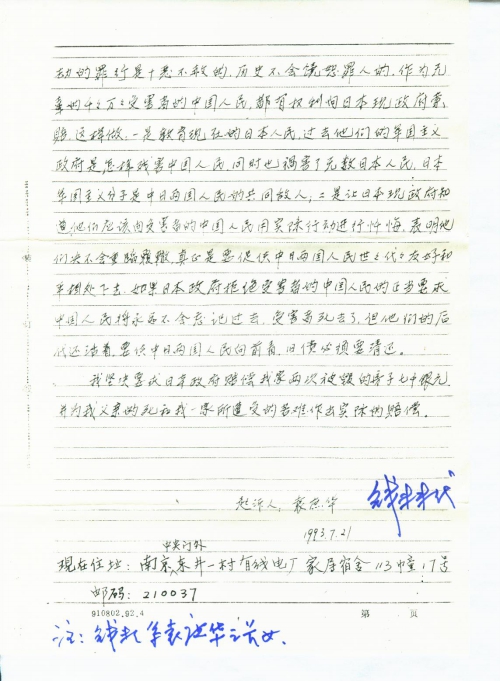 动的罪行是十恶不赦的，历史不会饶恕罪人的，作为无
辜的千千万万受害者的中国人民，都有权利向日本现政府索
赔，这样做，一是教育现在的日本人民，过去他们的军国主义
政府是怎样残害中国人民，同时也祸害了无数日本人民，日本
军国主义分子是中日两国人民的共同敌人；二是让日本现政府知
道，他们应该向受害者的中国人民用实际行动进行忏悔，表明他
们决不会重蹈覆辙，真正是要促使中日两国人民世世代代友好和
平相处下去，如果日本政府拒绝受害者的中国人民的正当要求
中国人民将永远不会忘记过去，受害者死去了，但他们的后
代还活着，要使中日两国人民向前看，旧债必须要清还。
我坚决要求日本政府赔偿我家两次被毁的房子七千银元，
并为我父亲的死和我一家所遭受的苦难作出实际的赔偿。
起诉人：袁 华
1993.7.21
中央门外
现在住址：南京东井一村有线电厂家属宿舍113幢17号
邮码：210037
910802.92.4 第 页
注： 袁 华之长女.